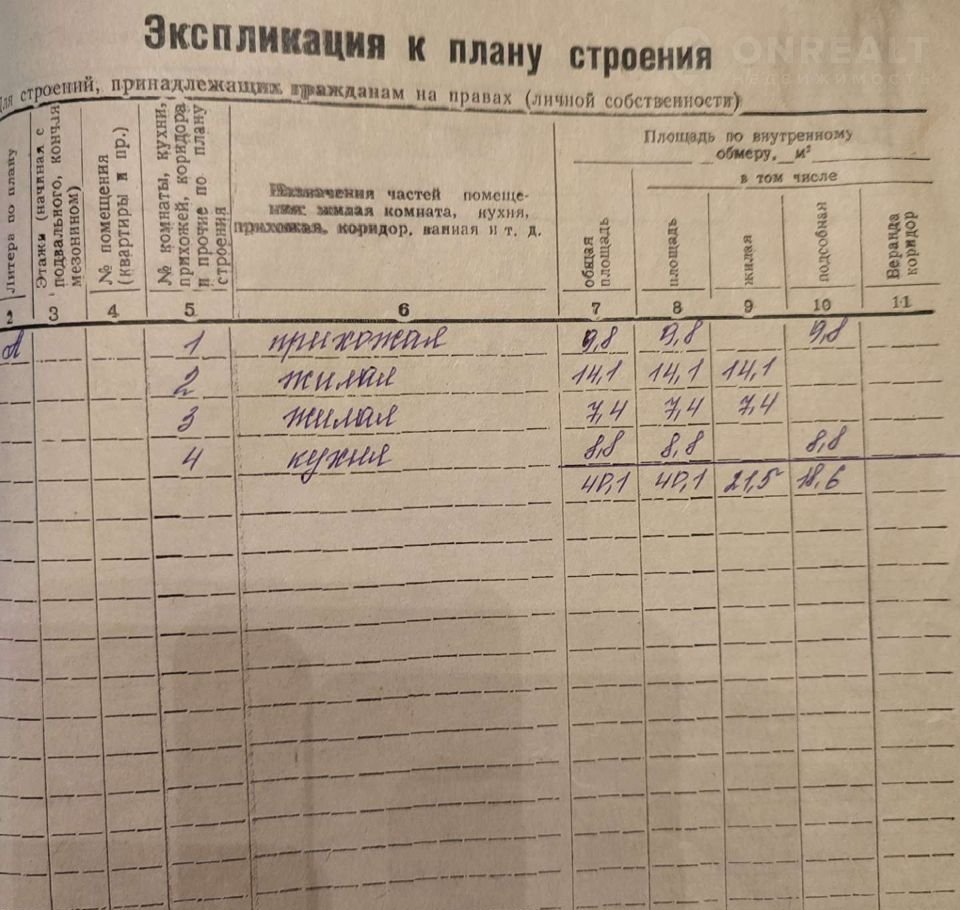 Экспликация к плану строения
ONREALT
НЕДВИЖИМОСТЬ
для строений, принадлежащих гражданам на правах (личной собственности)
Литера по плану
Этажи (начиная с
подвального, кончая
мезонином)
№ помещения
(квартиры и пр.)
№ комнаты, кухни,
прихожей, коридора
и прочие по плану
строения
Назначения частей помеще-
ния: жилая комната, кухня,
прихожая, коридор, ванная и т. д.
Площадь по внутренному
обмеру, м²
в том числе
общая
площадь
площадь
жилая
подсобная
Веранда
коридор
2 3 4 5 6 7 8 9 10 11
А 1 прихожая 9,8 9,8 9,8
2 жилая 14,1 14,1 14,1
3 жилая 7,4 7,4 7,4
4 кухня 8,8 8,8 8,8
40,1 40,1 21,5 18,6